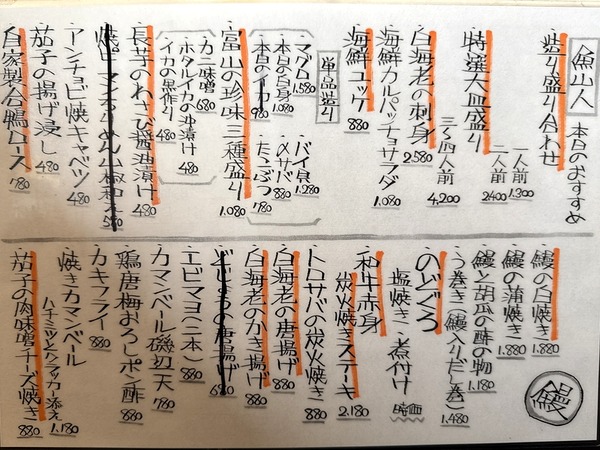 魚山人 本日のおすすめ
造り盛り合わせ
一人前 1.300
二人前 2400
特選大皿盛り
三〜四人前 4,200
白海老の刺身 2,580
海鮮カルパッチョサラダ 1,080
海鮮ユッケ 880
単品造り
マグロ 1.580
本日の白身 1.080
本日のイカ 980
バイ貝 1.280
〆サバ 880
たこぶつ 780
富山の珍味三種盛り 1.080
カニ味噌 680
ホタルイカの沖漬け 480
イカの黒作り 480
長芋のわさび醤油漬け 480
アンチョビ焼キャベツ 480
茄子の揚げ浸し 480
自家製合鴨ロース 780
鰻の白焼き 1.880
鰻の蒲焼き 1.880
鰻と胡瓜の酢の物 1.180
う巻き(鰻入りだし巻) 1.480
のどぐろ
塩焼き・煮付け 時価
和牛赤身
炭火焼きステーキ 2.180
トロサバの炭火焼き 880
白海老の唐揚げ 880
白海老のかき揚げ 880
の唐揚げ
エビマヨ(二本) 880
カマンベール磯辺天 780
鶏唐梅おろしポン酢 880
カキフライ 880
焼きカマンベール
ハチミツとクラッカー添え 1.180
茄子の肉味噌チーズ焼き 880
鰻